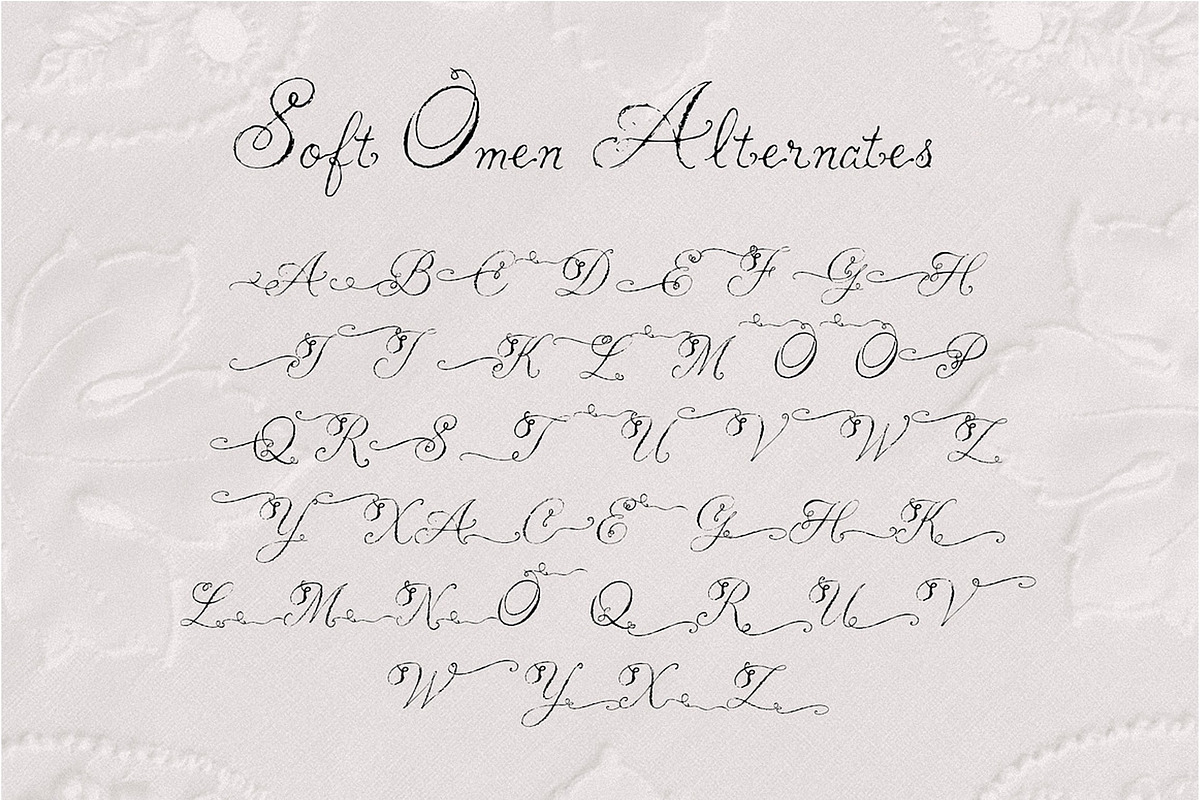 Soft Omen Alternates
A B C D E F G H
I J K L M O O P
Q R S T U V W Z
Y X A C E G H K
L M N O Q R U V
W Y X Z